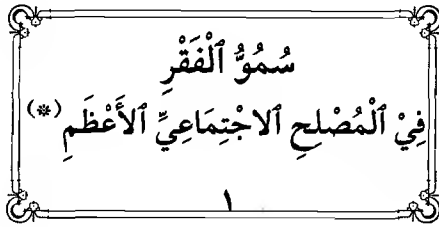 سُمُوُّ ٱلْفَقْرِ
فِيْ ٱلْمُصْلِحِ ٱلاجْتِمَاعِيِّ ٱلأَعْظَمِ (*)
١